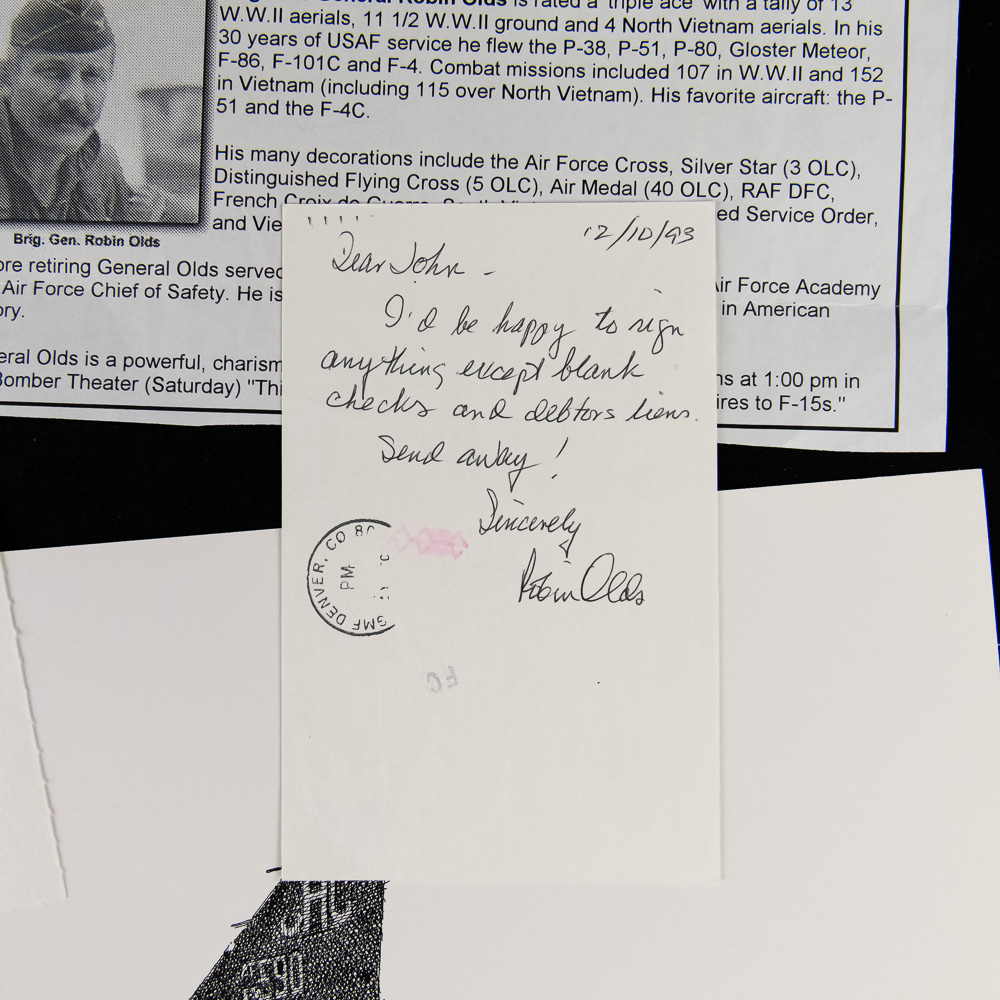 General Robin Olds is rated a "triple ace" with a tally of 13
W.W.II aerials, 11 1/2 W.W.II ground and 4 North Vietnam aerials. In his
30 years of USAF service he flew the P-38, P-51, P-80, Gloster Meteor,
F-86, F-101C and F-4. Combat missions included 107 in W.W.II and 152
in Vietnam (including 115 over North Vietnam). His favorite aircraft: the P-
51 and the F-4C.
His many decorations include the Air Force Cross, Silver Star (3 OLC),
Distinguished Flying Cross (5 OLC), Air Medal (40 OLC), RAF DFC,
French Croix de Guerre, South ed Service Order,
and Vie
Brig. Gen. Robin Olds
ore retiring General Olds served ir Force Academy
Air Force Chief of Safety. He is in American
ory.
eral Olds is a powerful, charism ns at 1:00 pm in
Bomber Theater (Saturday) "Thi ires to F-15s."
12/10/93
Dear John -
I'd be happy to sign
anything except blank
checks and debtors liens.
Send away!
Sincerely
Robin Olds
GMF DENVER, CO 80
PM